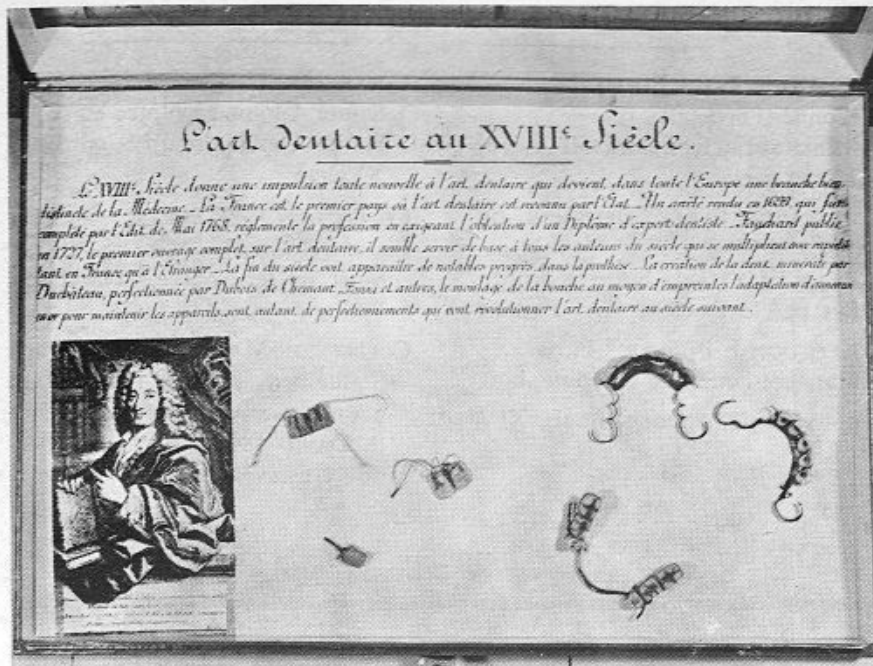 L'art dentaire au XVIIIe Siècle.
Le XVIIIe Siècle donne une impulsion toute nouvelle à l'art dentaire qui devient, dans toute l'Europe une branche bien
distincte de la Médecine. La France est le premier pays où l'art dentaire est reconnu par l'Etat. Un arrêté rendu en 1699, qui fut
complété par l'Edit de Mai 1768, réglemente la profession en exigeant l'obtention d'un Diplôme d'expert-dentiste. Fauchard publie,
en 1727, le premier ouvrage complet, sur l'art dentaire, il semble servir de base à tous les auteurs du siècle qui se multiplient
tant en France qu'à l'Etranger. La fin du siècle voit apparaître de notables progrès dans la prothèse. La création de la dent minérale par
Duchâteau, perfectionnée par Dubois de Chemant, Fonzi et autres, le moulage de la bouche au moyen d'empreintes l'adaptation
pour maintenir les appareils, sont autant de perfectionnements qui vont révolutionner l'art dentaire au siècle suivant.